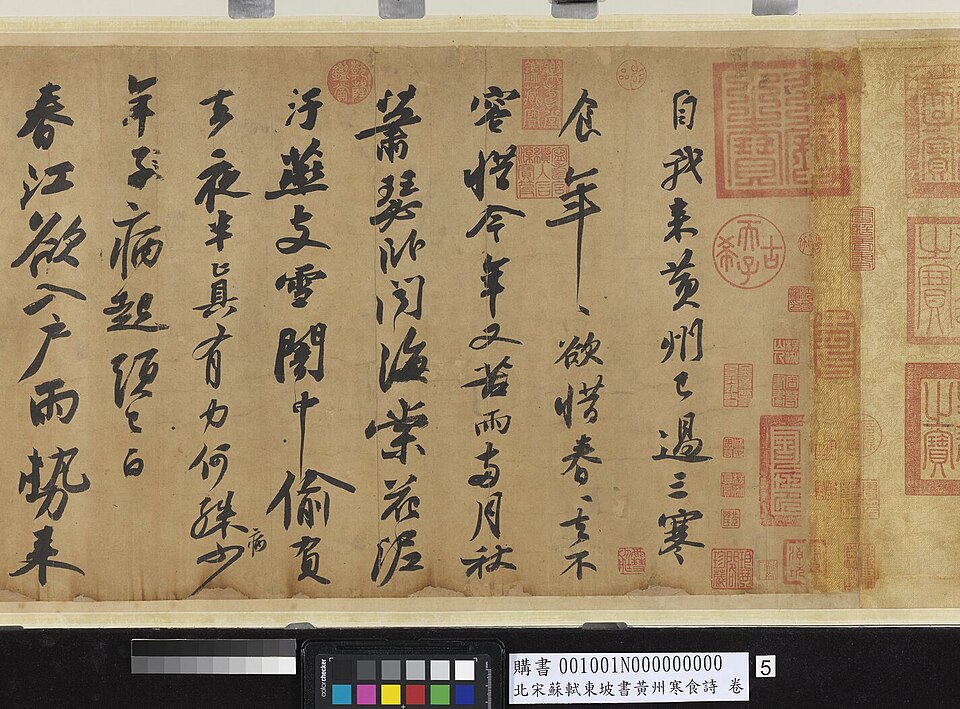 自我來黃州已過三寒
食年、欲惜春、去不
容惜今年又苦雨兩月秋
蕭瑟臥聞海棠花泥
汙燕支雪闇中偷負
去夜半真有力何殊少
病
年子病起頭已白
春江欲入戶雨勢來
古希天子
colorchecker
購書 001001N000000000
北宋蘇軾東坡書黃州寒食詩 卷
5